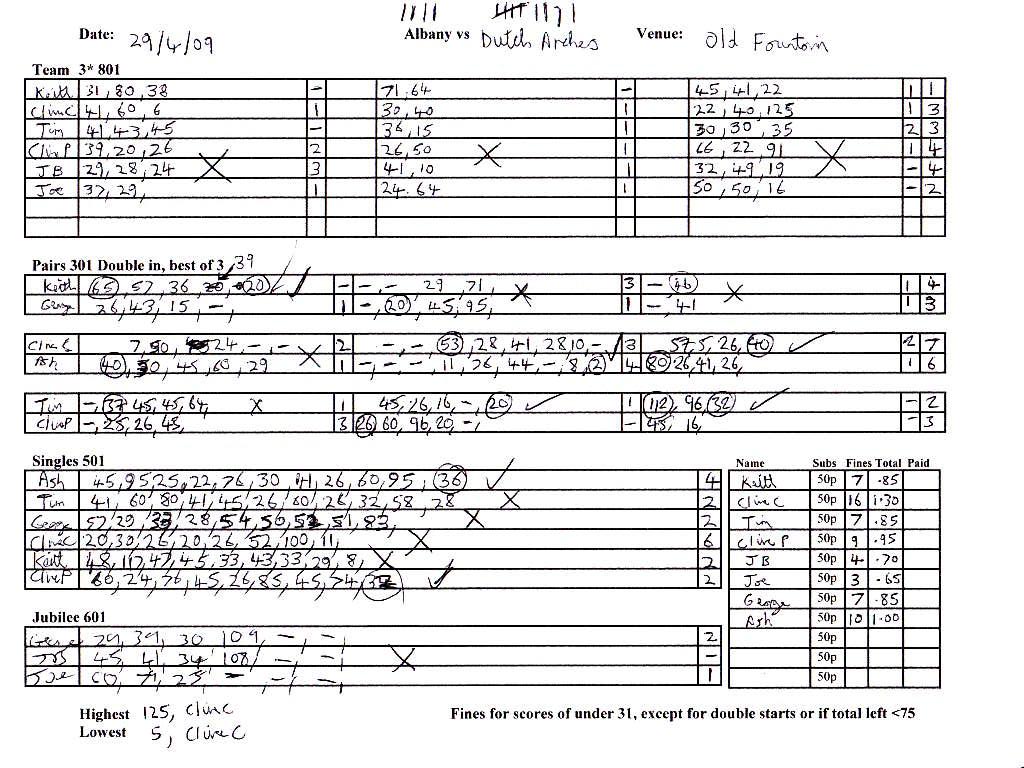 Date: 29/4/09 Albany vs Dutch Arches Venue: Old Fountain
Team 3* 801
Keith 31, 80, 38 - 71, 64 - 45, 41, 22 1 1
Clive C 41, 60, 6 1 30, 40 1 22, 40, 125 1 3
Tim 41, 43, 45 - 36, 15 1 30, 30, 35 2 3
Clive P 39, 20, 26 X 2 26, 50 X 1 66, 22, 91 X 1 4
JB 29, 28, 24 3 41, 10 1 32, 49, 19 - 4
Joe 37, 29, 1 24, 64 1 50, 50, 16 - 2
Pairs 301 Double in, best of 3 39
Keith 65, 57, 36 20 ✓ - -, -, 29, 71, X 3 - 46 X 1 4
George 26, 43, 15, -, 1 -, 20, 45, 95, 1 -, 41 1 3
Clive C 7, 50, 24, -, - X 2 -, -, 53, 28, 41, 28 10, -, ✓ 3 57, 5, 26, 40 ✓ 2 7
Ash 40, 30, 45, 60, 29 1 -, -, -, 11, 36, 44, -, 8, 2 4 80 26, 41, 26, 1 6
Tim -, 37 45, 45, 64, X 1 45, 26, 16, -, 20 ✓ 1 112, 96, 32 ✓ - 2
Clive P -, 25, 26, 45, 3 26 60, 96, 20, -, - 45, 16, - 3
Singles 501
Ash 45, 95, 25, 22, 76, 30, 41, 26, 60, 95, 36 ✓ 4
Tim 41, 60, 80, 41, 45, 26, 60, 26, 32, 58, 28 X 2
George 57, 29, 28, 54, 50, 52, 51, 83, X 2
Clive C 20, 30, 26, 20, 26, 52, 100, 11, X 6
Keith 48, 117, 47, 45, 33, 43, 33, 29, 8, X 2
Clive P 60, 24, 76, 45, 26, 85, 45, 74, ✓ 2
Name Subs Fines Total Paid
Keith 50p 7 .85
Clive C 50p 16 1.30
Tim 50p 7 .85
Clive P 50p 9 .95
JB 50p 4 .70
Joe 50p 3 .65
George 50p 7 .85
Ash 50p 10 1.00
50p
50p
50p
Jubilee 601
George 29, 39, 30 109, -, -, 2
JB 45, 41, 34, 108, -, -, X -
Joe 60, 71, 25, -, -, -, 1
Highest 125, Clive C
Lowest 5, Clive C
Fines for scores of under 31, except for double starts or if total left <75